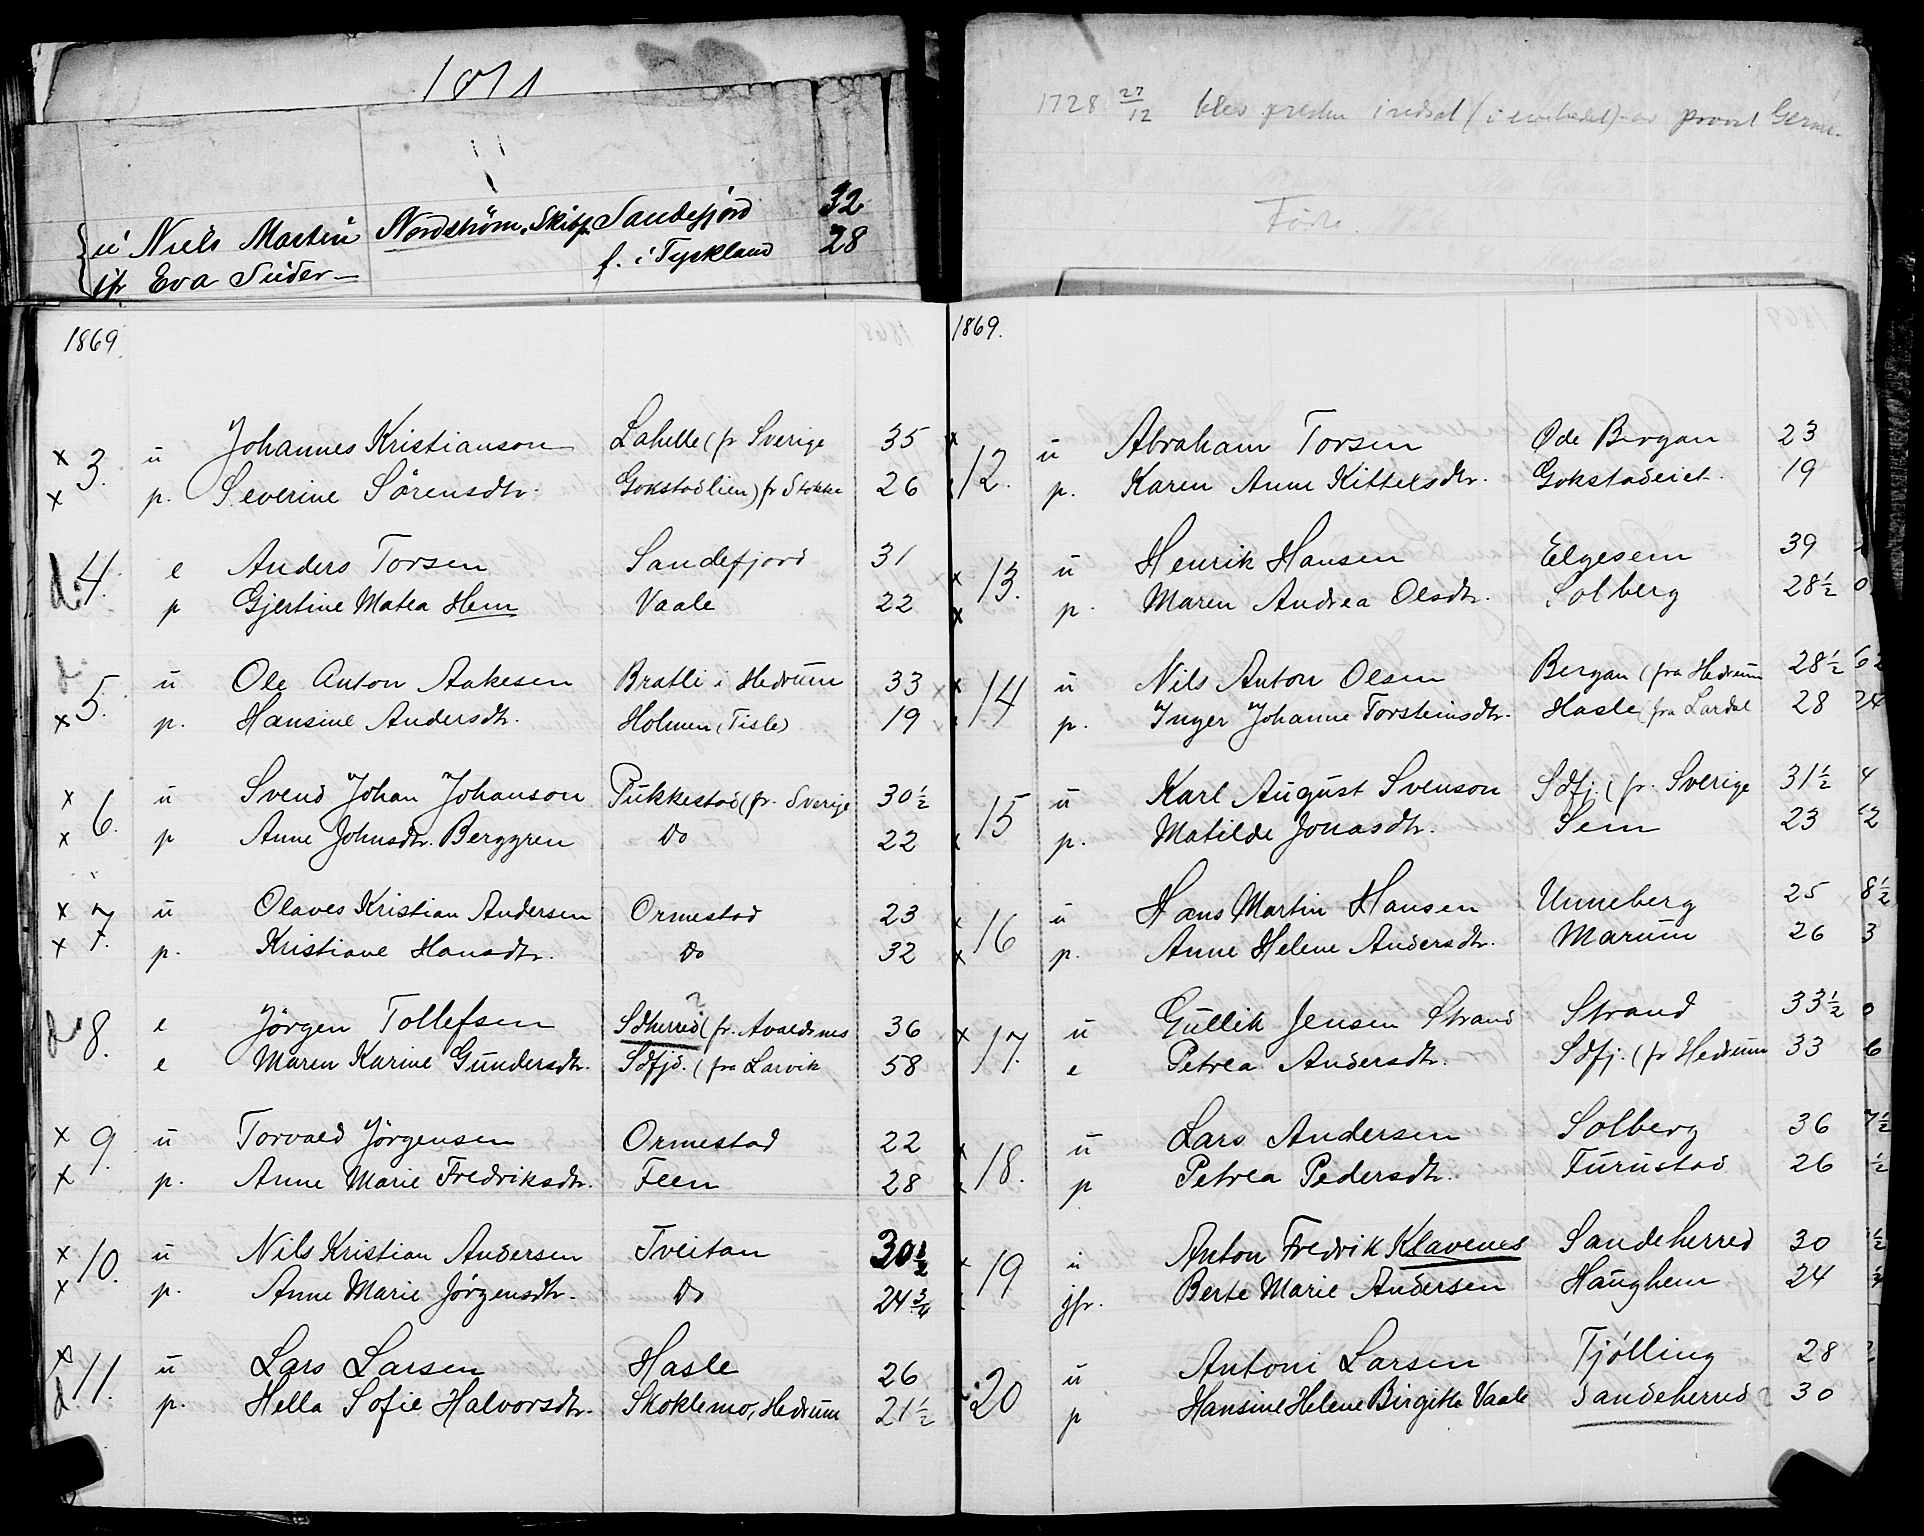 1871
{ u Niels Martin Nordstrøm, Skibsf. Sandefjord 32
jfr Eva Suder f. i Tyskland 28
1869
x 3. u Johannes Kristianson Lahelle (fr Sverige 35
x p. Severine Sörensdtr. Gokstadlien) fr Stokke 26
d. 4. e Anders Torsen Sandefjord 31
p Gjertine Matea Hem Vaale 22
d. 5. u Ole Anton Aakesen Bratli i Hedrum 33
x p. Hansine Andersdtr. Holmen (Tisle) 19
x 6. u Svend Johan Johanson Pukkestad (fr. Sverige 30 1/2
x p Anne Johnsdtr. Berggren Do 22
x 7. u Olaves Kristian Andersen Ormestad 23
x p. Kristiane Hansdtr. Do 32
d 8. e Jörgen Tollefsen Sdherred ? (fr. Avaldsnes 36
e Maren Karine Gundersdtr. Sdfjd. (fra Larvik 58
x 9. u Torvald Jörgensen Ormestad 22
x p. Anne Marie Fredriksdtr. Feen 28
x 10. u Nils Kristian Andersen Tveitan 30 1/2
x p. Anne Marie Jörgensdtr. Do 24 3/4
x 11. u Lars Larsen Hasle 26
d p. Hella Sofie Halvorsdtr. Skoklemo, Hedrum 21 1/2
1728 27/12 blev presten indsat (i embedet) av provst
Födte.
1869.
x 12. u Abraham Torsen Öde Bergan 23
p. Karen Anne Kittelsdtr. Gokstadeiet. 19
x 13. u Henrik Hansen Elgesem 39
x p. Maren Andrea Olsdtr. Solberg 28 1/2
x 14 u Nils Anton Olsen Bergan (fra Hedrum 28 1/2
p. Inger Johanne Torsteinsdtr. Hasle (fra Lardal 28
15 u Karl August Svenson Sdfj. (fr. Sverige 31 1/2
x p. Matilde Jonasdtr. Sem 23
x 16 u Hans Martin Hansen Unneberg 25
x p. Anne Helene Andersdtr. Marum 26
x 17. u Gullik Jensen Strand Strand 33 1/2
e Petrea Andersdtr. Sdfj. (fr Hedrum 33
x 18. u Lars Andersen Solberg 36
x p Petrea Pedersdtr. Furustad 26
x 19 u Anton Fredrik Klavenes Sandeherred 30
jfr. Berte Marie Andersen Haughem 24
20 u Antoni Larsen Tjölling 28
p Hansine Helene Birgitte Vaale Sandeherred ? 30